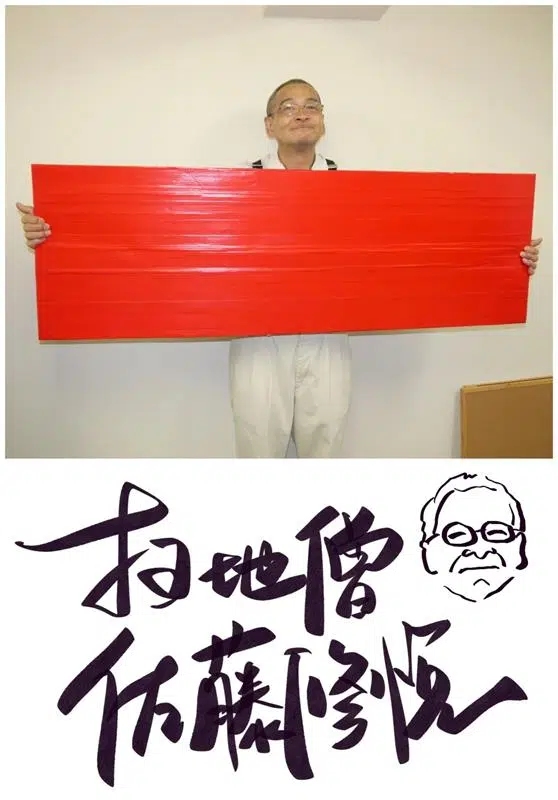 扫地僧
佐藤修悦